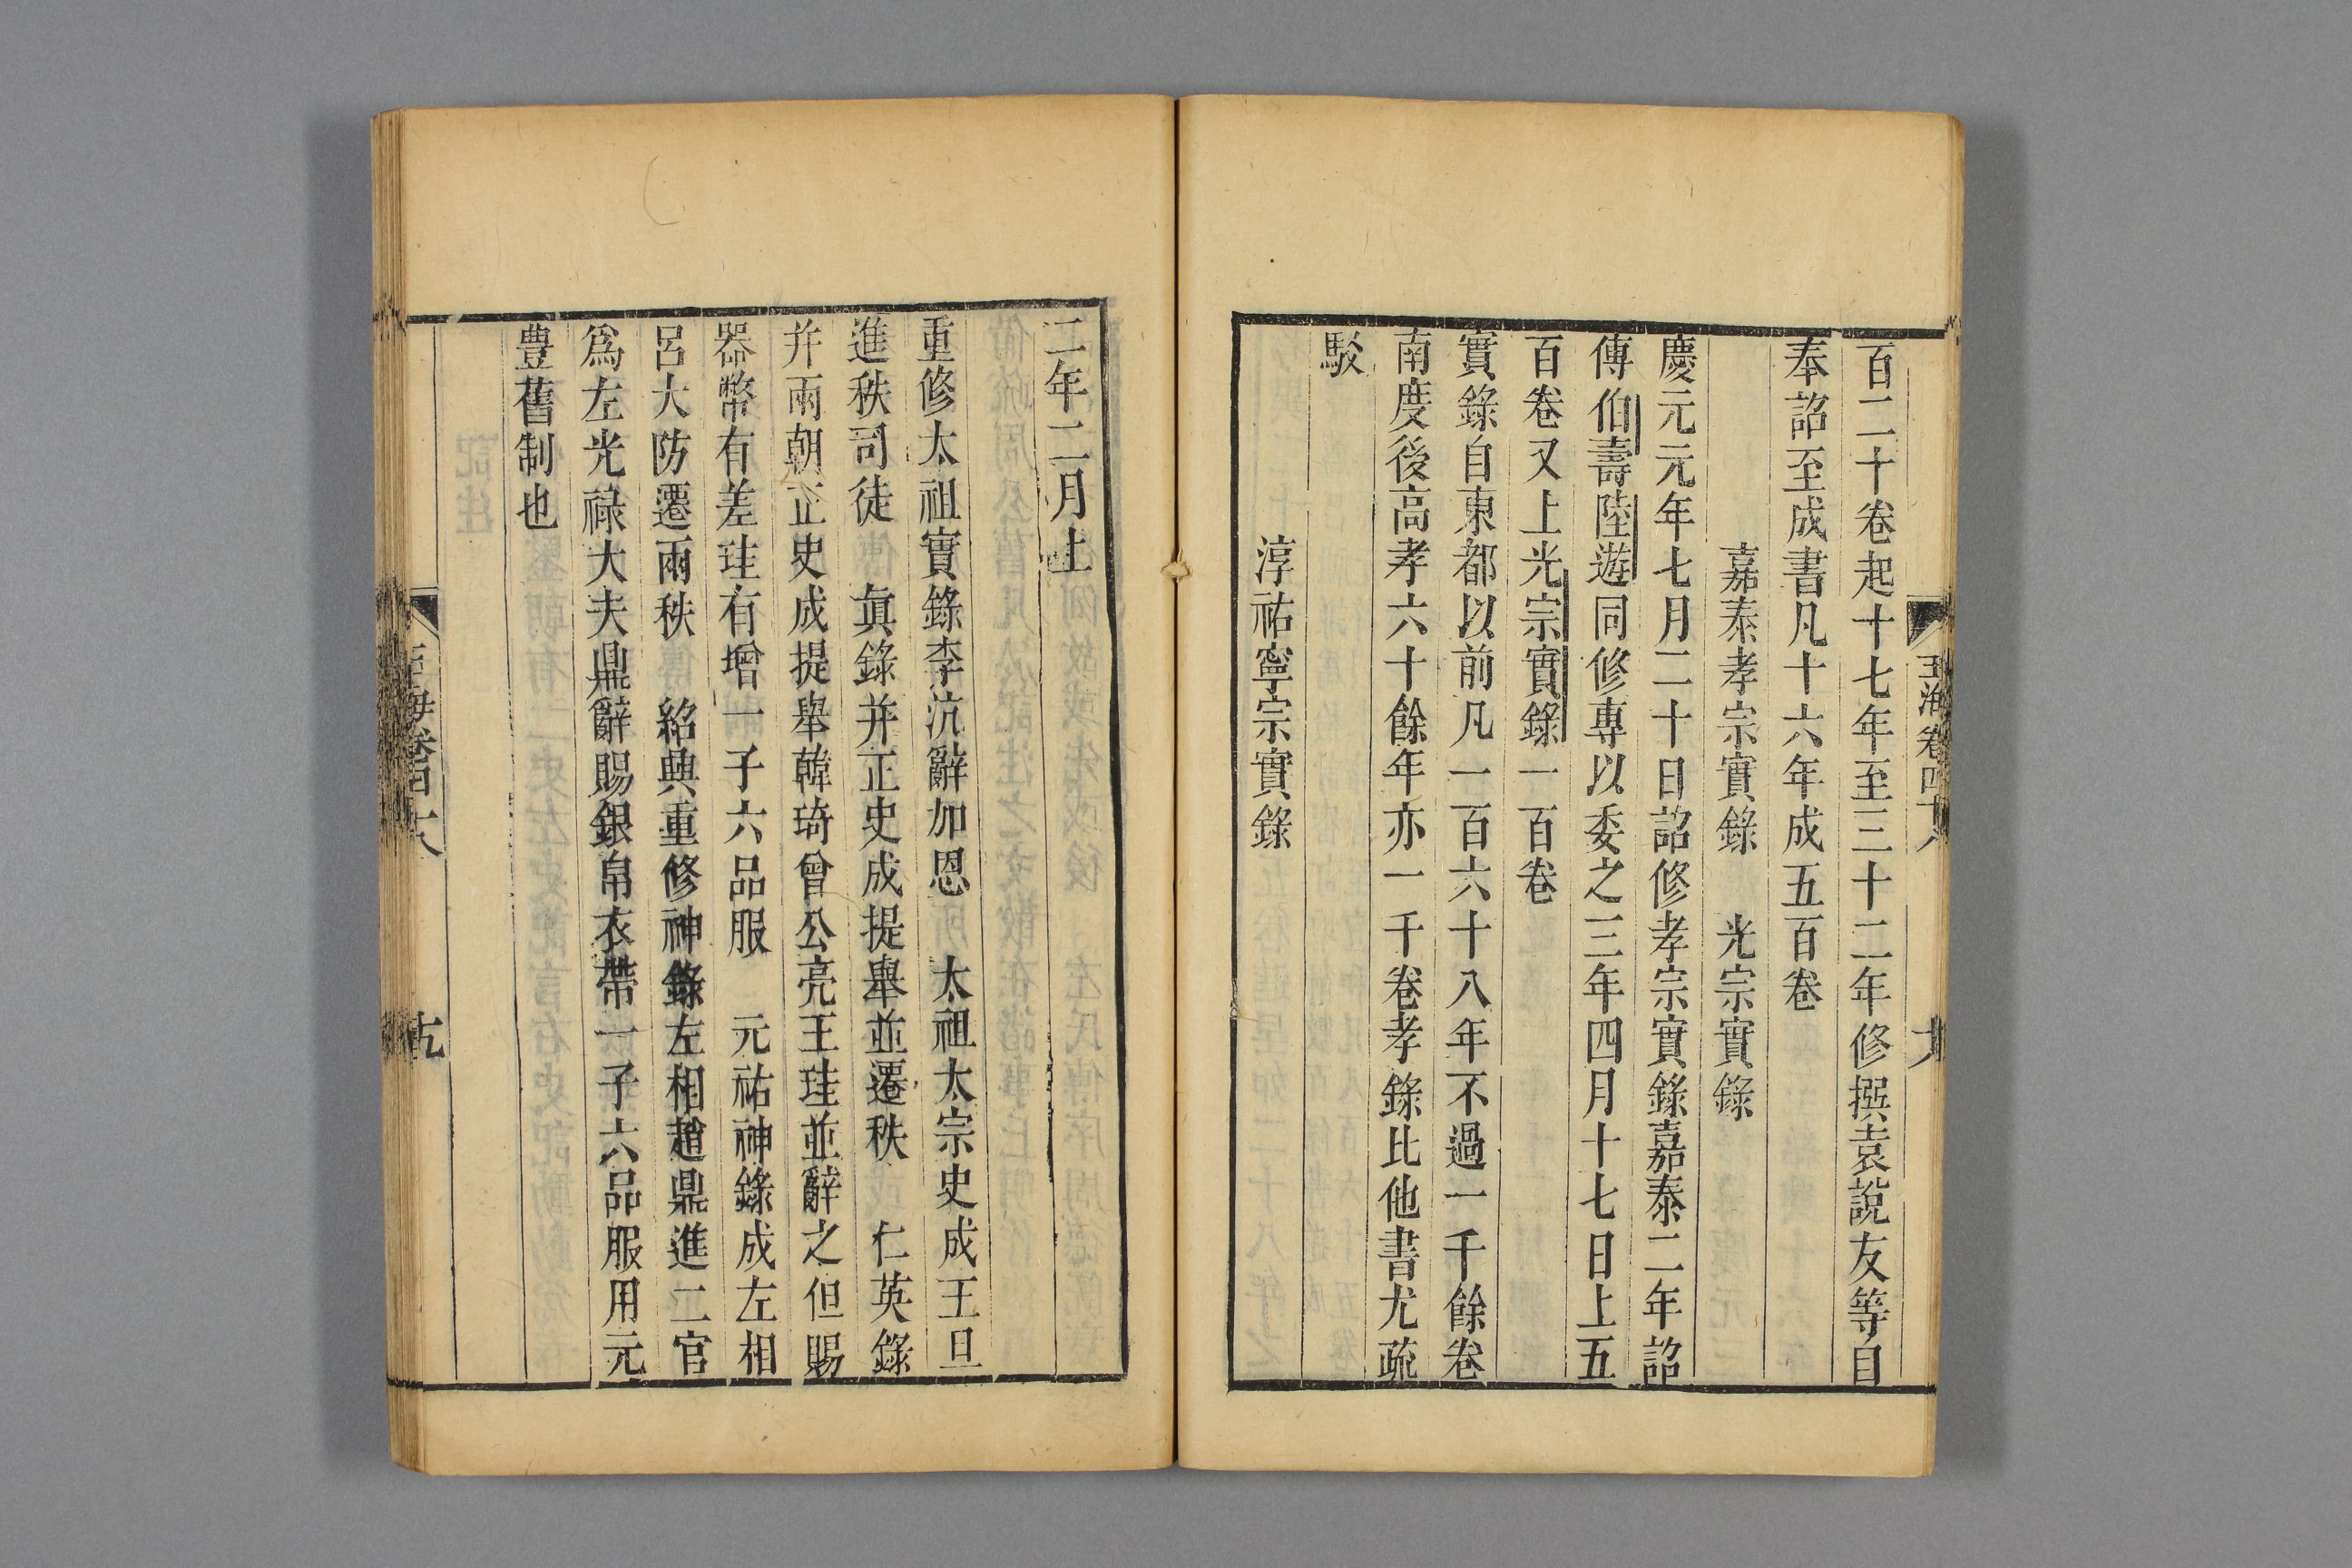 玉海卷四十八
百二十卷起十七年至三十二年修撰袁說友等自
奉詔至成書凡十六年成五百卷
嘉泰孝宗實錄　光宗實錄
慶元元年七月二十日詔修孝宗實錄嘉泰二年詔
傳伯壽陸遊同修專以委之三年四月十七日上五
百卷又上光宗實錄一百卷
實錄自東都以前凡一百六十八年不過一千餘卷
南度後高孝六十餘年亦一千卷孝錄比他書尤疏
駁
淳祐寧宗實錄
二年二月上
重修太祖實錄李沆辭加恩　太祖太宗史成王旦
進秩司徒　眞錄并正史成提舉並遷秩　仁英錄
并兩朝正史成提舉韓琦曾公亮王珪並辭之但賜
器幣有差珪有增一子六品服　元祐神錄成左相
呂大防遷兩秩　紹興重修神錄左相趙鼎進二官
爲左光祿大夫鼎辭賜銀帛衣帶一子六品服用元
豊舊制也